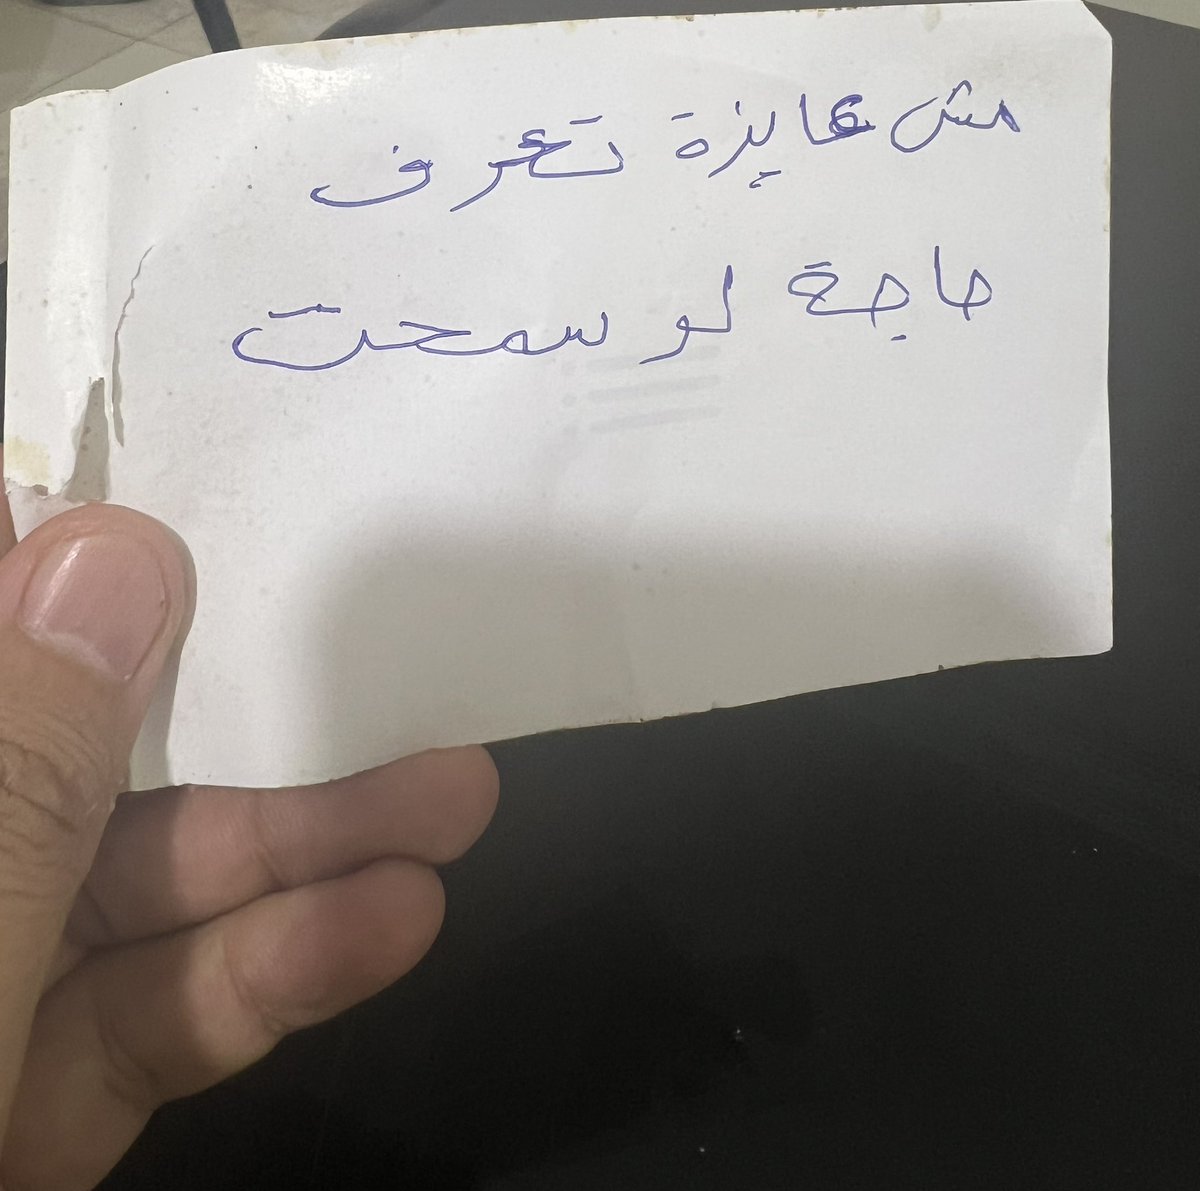 مش عايزة تعرف
حاجة لو سمحت